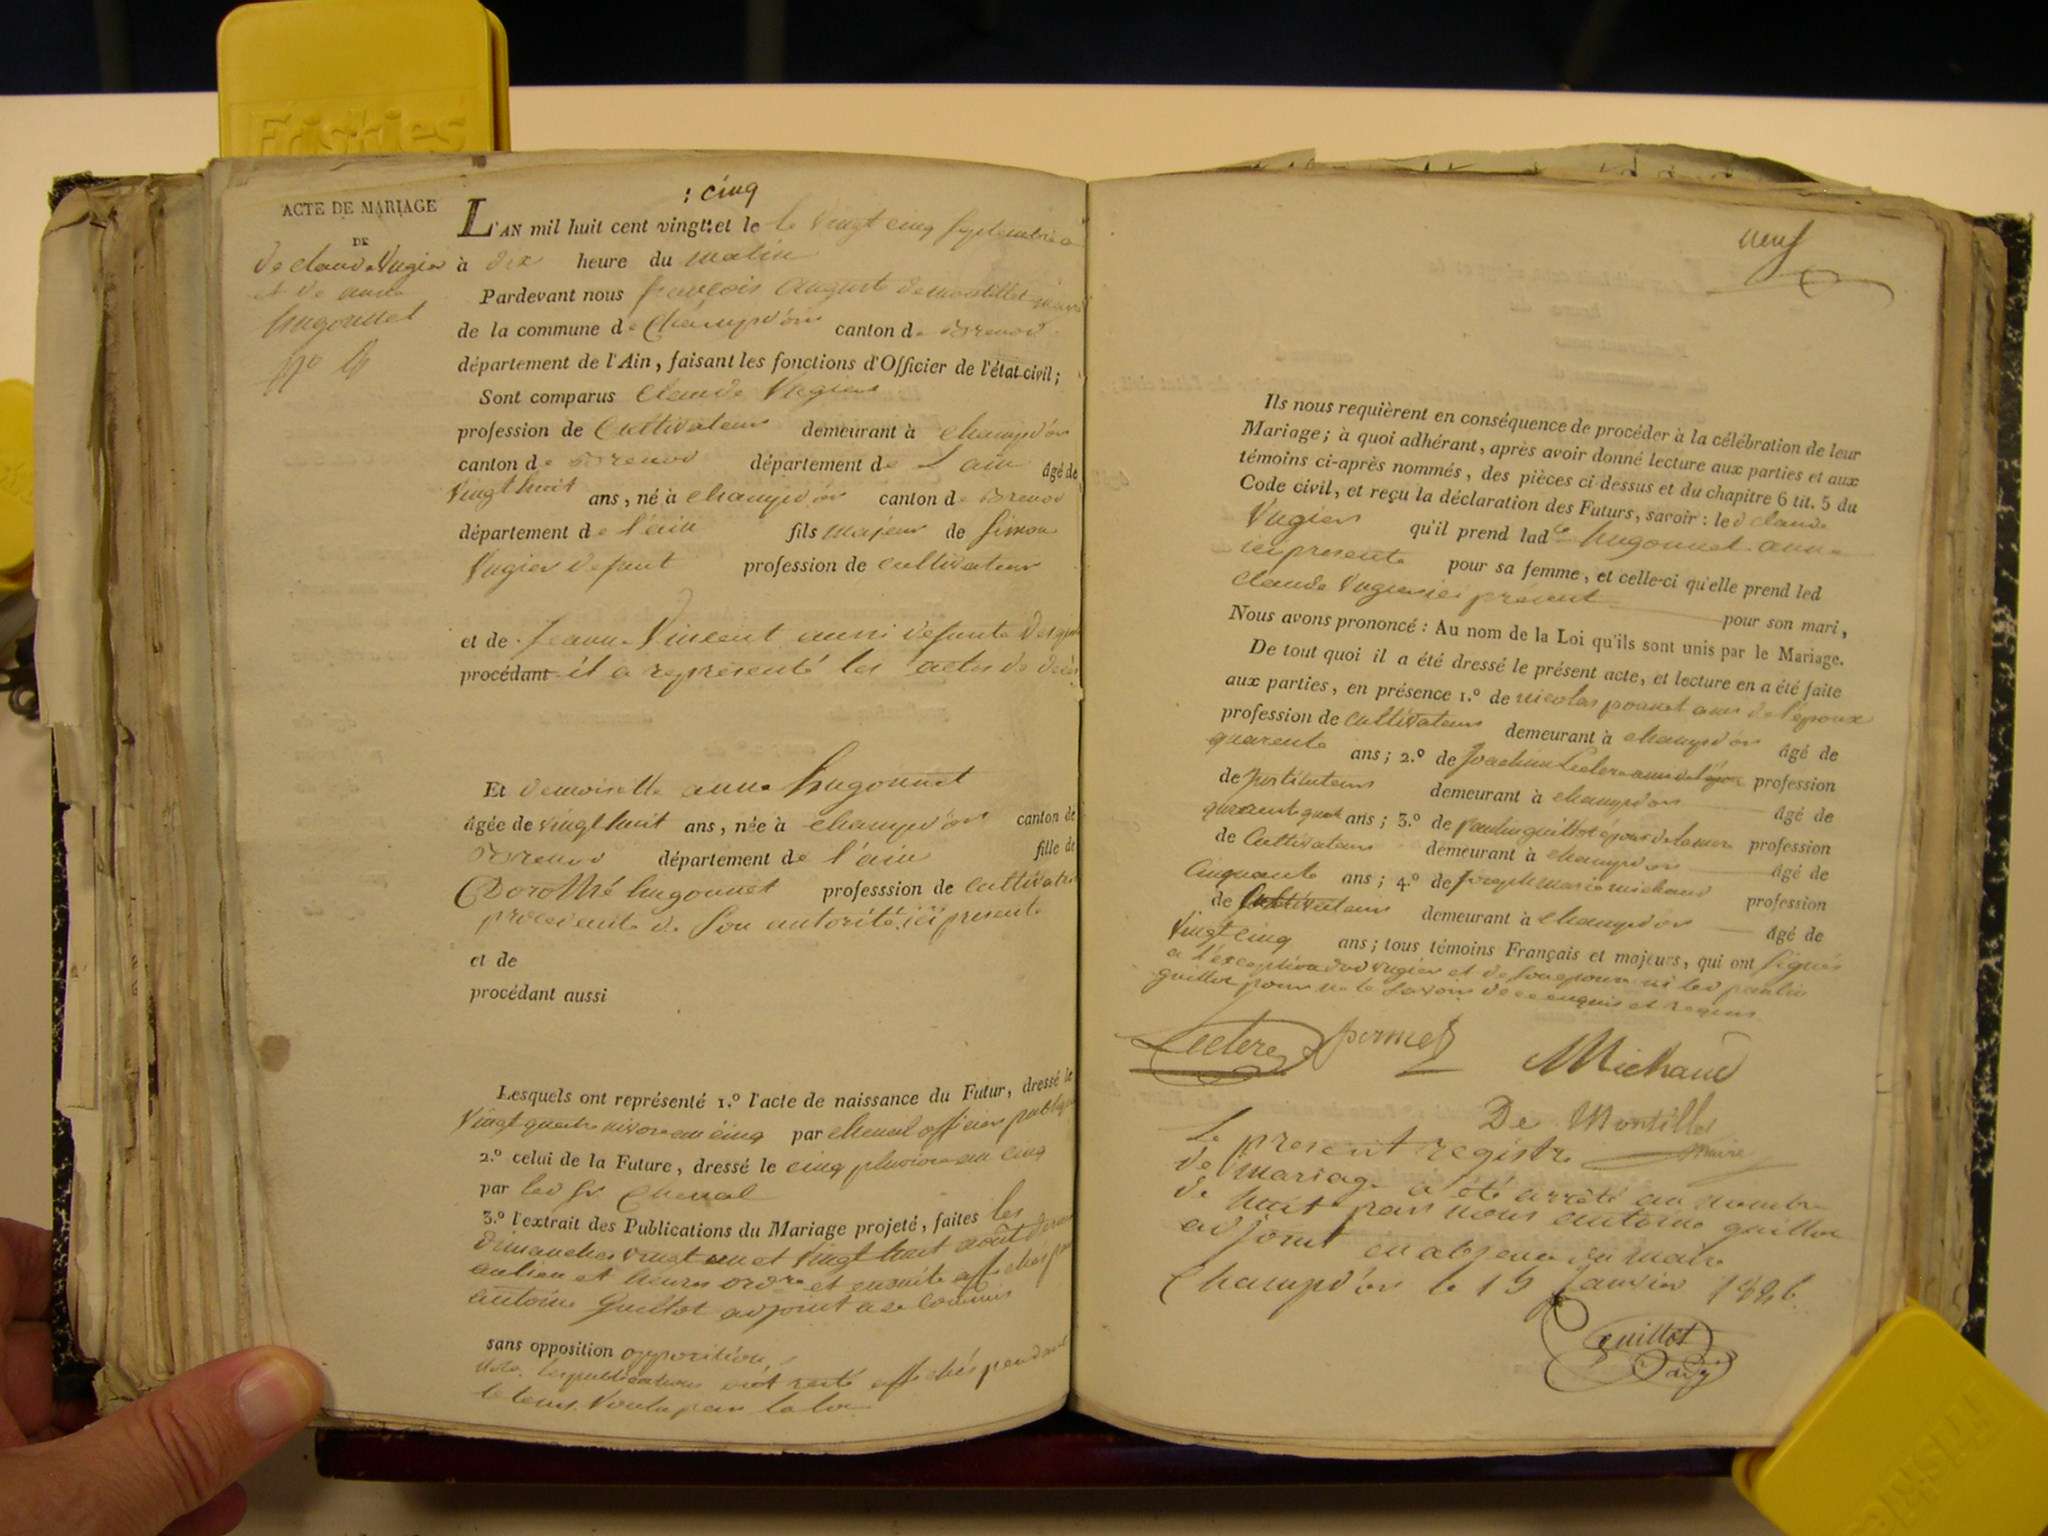 Friskies
ACTE DE MARIAGE
DE
de claude Vugier
et de anne
hugonnet
: cinq
L'AN mil huit cent vingt et le le vingt cinq septembre a
à dix heure du matin
Pardevant nous françois auguste demontillet maire
de la commune de Champd'or canton de Brenod
département de l'Ain, faisant les fonctions d'Officier de l'état civil;
Sont comparus Claude Vugier
profession de Cultivateur demeurant à champd'or
canton de Brenod département de L'ain âgé de
Vingt huit ans, né à champd'or canton de Brenod
département de l'ain fils majeur de Simon
Vugier defunt profession de cultivateur
et de Jeanne Vincent aussi defunte desquels
procédant il a représenté les actes de décès
Et demoiselle anne hugonnet
âgée de vingt huit ans, née à champd'or canton de
Brenod département de l'ain fille de
Dorothé hugonnet professsion de cultivatrice
procedente de son autorité ici presente
et de
procédant aussi
Lesquels ont représenté 1.º l'acte de naissance du Futur, dressé le
Vingt quatre nivose an cinq par chenal officier public
2.º celui de la Future, dressé le cinq pluviose an cinq
par led sr. Chenal
3.º l'extrait des Publications du Mariage projeté, faites les
dimanches vingt un et vingt huit août dernier
au lieu et heures ordre et ensuite affichés par
antoine Guillot adjoint a ce commis
sans opposition opposition
les publications ont resté affichés pendant
le tems voulu par la loi
neuf
Ils nous requièrent en conséquence de procéder à la célébration de leur
Mariage; à quoi adhérant, après avoir donné lecture aux parties et aux
témoins ci-après nommés, des pièces ci dessus et du chapitre 6 tit. 5 du
Code civil, et reçu la déclaration des Futurs, savoir: led claude
Vugier qu'il prend ladte hugonnet anne
ici presente pour sa femme, et celle-ci qu'elle prend led
Claude Vugier ici présent pour son mari,
Nous avons prononcé: Au nom de la Loi qu'ils sont unis par le Mariage.
De tout quoi il a été dressé le présent acte, et lecture en a été faite
aux parties, en présence 1.º de nicolas ponnet ami de l'époux
profession de cultivateur demeurant à champd'or âgé de
quarente ans; 2.º de Joachim Leclere ami de l'époux profession
de Jnstituteur demeurant à champd'or âgé de
quarente quatre ans; 3.º de paulin guillot époux de la mere profession
de Cultivateur demeurant à champd'or âgé de
Cinquante ans; 4.º de Joseph marie michaud profession
de Cultivateur demeurant à champd'or âgé de
Vingt cinq ans; tous témoins Français et majeurs, qui ont signés
a l'exception dud vugier et de son epouse ni led paulin
guillot pour ne le savoir de ce enquis et requis
Leclere ponnet Michaud
De Montillet
maire
Le present registre
de mariage a été arrêté au nombre
de huit par nous antoine guillot
adjoint en absence du maire
Champd'or le 15 Janvier 1826
Guillot
adj
Friskies